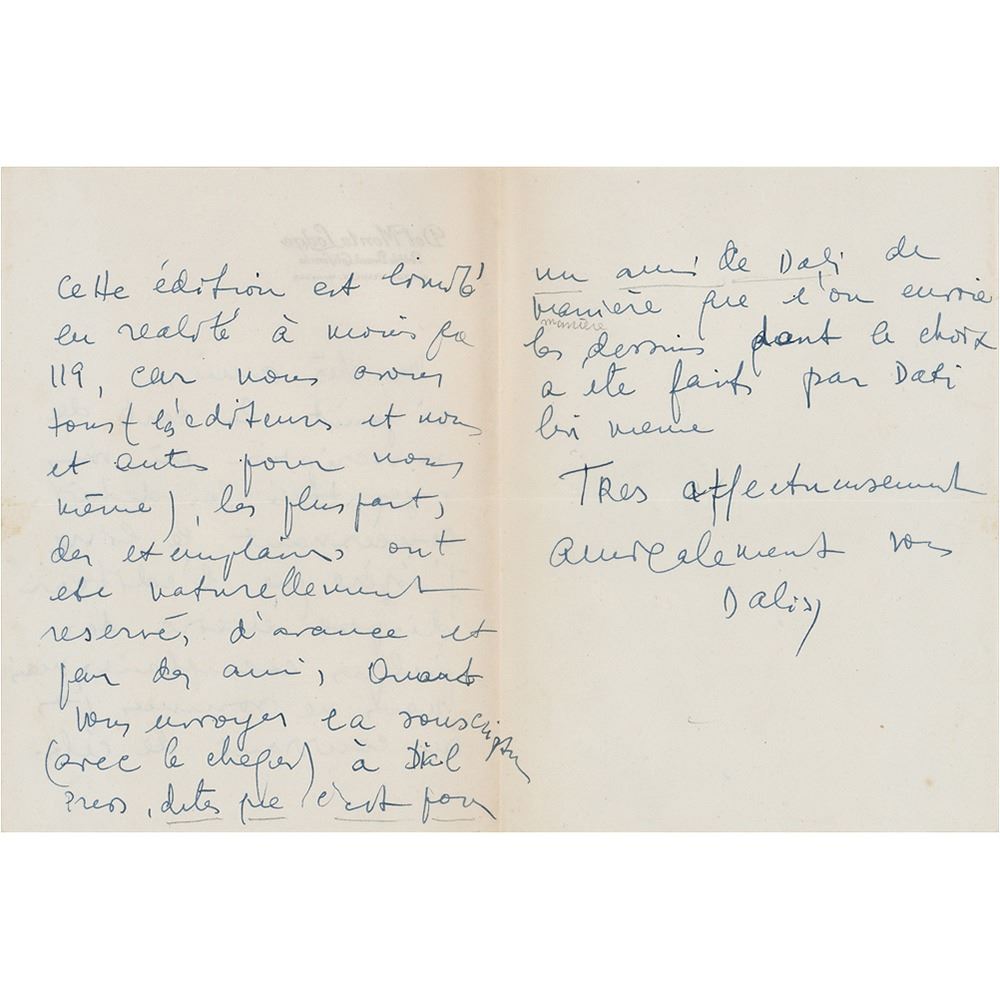 Del Monte Lodge
cette édition est limité
en realité à moins que
119, car nous avons
tous (les éditeurs et nous
et autes pour nous
même), les plus part,
des exemplaires ont
ete naturellement
reservé, d'avance et
par des ami, Quant
vous envoyes la souscription
(avec le cheque) à Dial
Press, dites que c'est pour
un ami de Dali de
manière que l'on envoie
manière
les dessins dont le choix
a ete faits par Dali
lui meme
Tres affectueusement
amicalement vos
Dalis